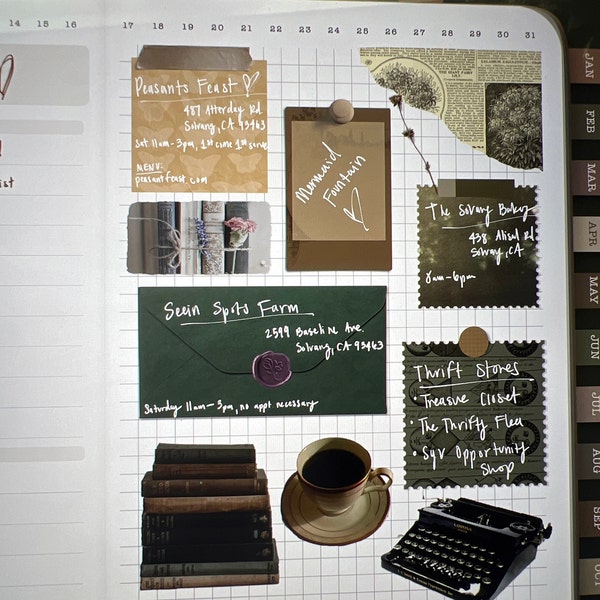 14 15 16 17 18 19 20 21 22 23 24 25 26 27 28 29 30 31
Peasants Feast
487 Atterdag Rd.
Solvang, CA 93463
Sat. 11am-3pm, 1st come 1st serve
MENU:
peasantfeast.com
Mermaid
Fountain
The Solvang Bakery
438 Alisal Rd
Solvang, CA
8am-6pm
Seein Spots Farm
2599 Baseline Ave.
Solvang, CA 93463
Saturday 11am-3pm, no appt necessary
Thrift Stores
• Treasure Closet
• The Thrifty Flea
• Syv Opportunity
Shop
JAN
FEB
MAR
APR
MAY
JUN
JUL
AUG
SEP
OCT
ist